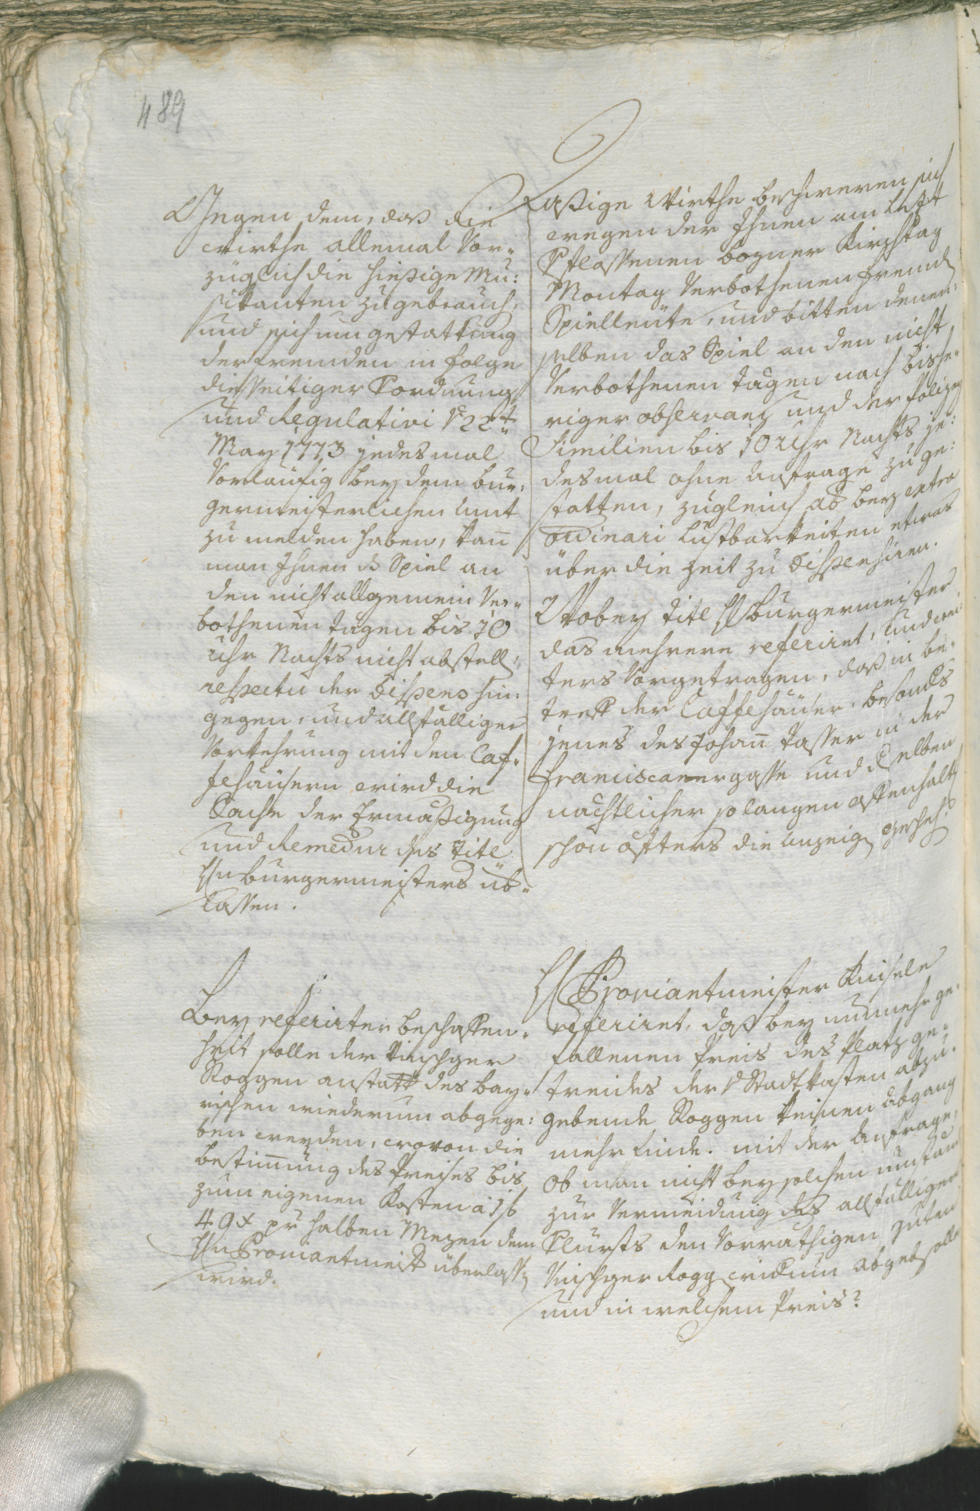 489
Gegen dem, daß die
Wirthe allemal Vor-
züglich die hießige Mu-
sikanten zu gebrauch,
und sich um gestattung
der fremden in folge
diesseitiger Ordnung
und Regulativi de 22t
May 1773 jedesmal
Vorläufig bey dem bur-
germeisterlichen Amt
zu melden haben, kan̄
man Ihnen ds Spiel an
den nicht allgemein Ver-
bothenen tagen bis 10
Uhr Nachts nicht abstell,
respectu der Dispens hin-
gegen, und allfälliger
Vorkehrung mit den Caf-
feehäusern wird die
Sache der Ermäßigung
und Remedur des Titl
Hn burgermeisters üb-
lassen.
Hießige Wirthe beschweren sich
wegen der Ihnen am letzt
Montag Verbothenen fremd
Spielleüte, und bitten denen-
selben das Spiel an den nicht
Verbothenen tägen nach bishe-
riger observanz und der
Similien bis 10 Uhr Nachts je-
desmal ohne Anfrage zu ge-
statten, zugleich ab bey extra
ordinari Lustbarkeiten etwas
über die Zeit zu Dispensiren.
Wobey Titl H burgermeister
das mehrere referirt, und
ters Vorgetragen, daß in be-
treff der Caffehäuser, besonders
jenes des Johan̄ Tasser in der
Franciscanergasse und deselben
nächtlicher so langen offenhalt
schon öffters die Anzeig gescheh.
Bey referirter beschaffen-
heit solle der Vinschger
Roggen anstatt des bay-
rischen wiederum abgege-
ben werden, wovon die
bestim̄ung des Preises bis
zum eigenen Kosten a 1 f
49 x pr halben Mezen dem
Hn Proviantmeist überlass
wird.
H Proviantmeister Kuisele
referiret, daß bey nunmehr ge-
fallenen Preis des Platz ge-
treides der Stadtkasten abzu-
gebende Roggen keinen Abgang
mehr finde. mit der Anfrage,
ob man nicht bey solchen umstän
zur Vermeidung des allfälliger
den Vorräthigen
Vinschger Rogg widrum abgeb solle
und in welchem Preis?